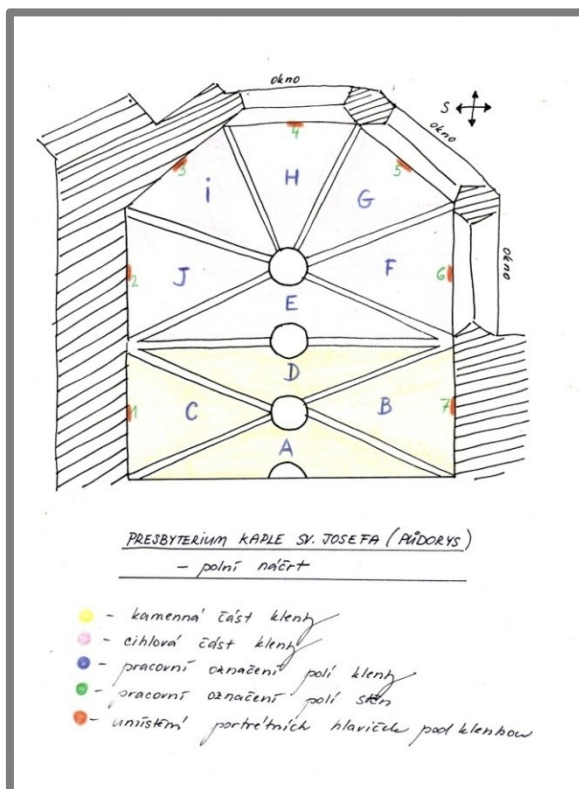 okno
S
okno
okno
4
3
5
H
i
G
2
J
F
6
E
D
1
C
B
7
A
PRESBYTERIUM KAPLE SV. JOSEFA (PŮDORYS)
- polní náčrt
- kamenná část klenby
- cihlová část klenby
- pracovní označení polí klenby
- pracovní označení polí stěn
- umístění portrétních hlaviček pod klenbou